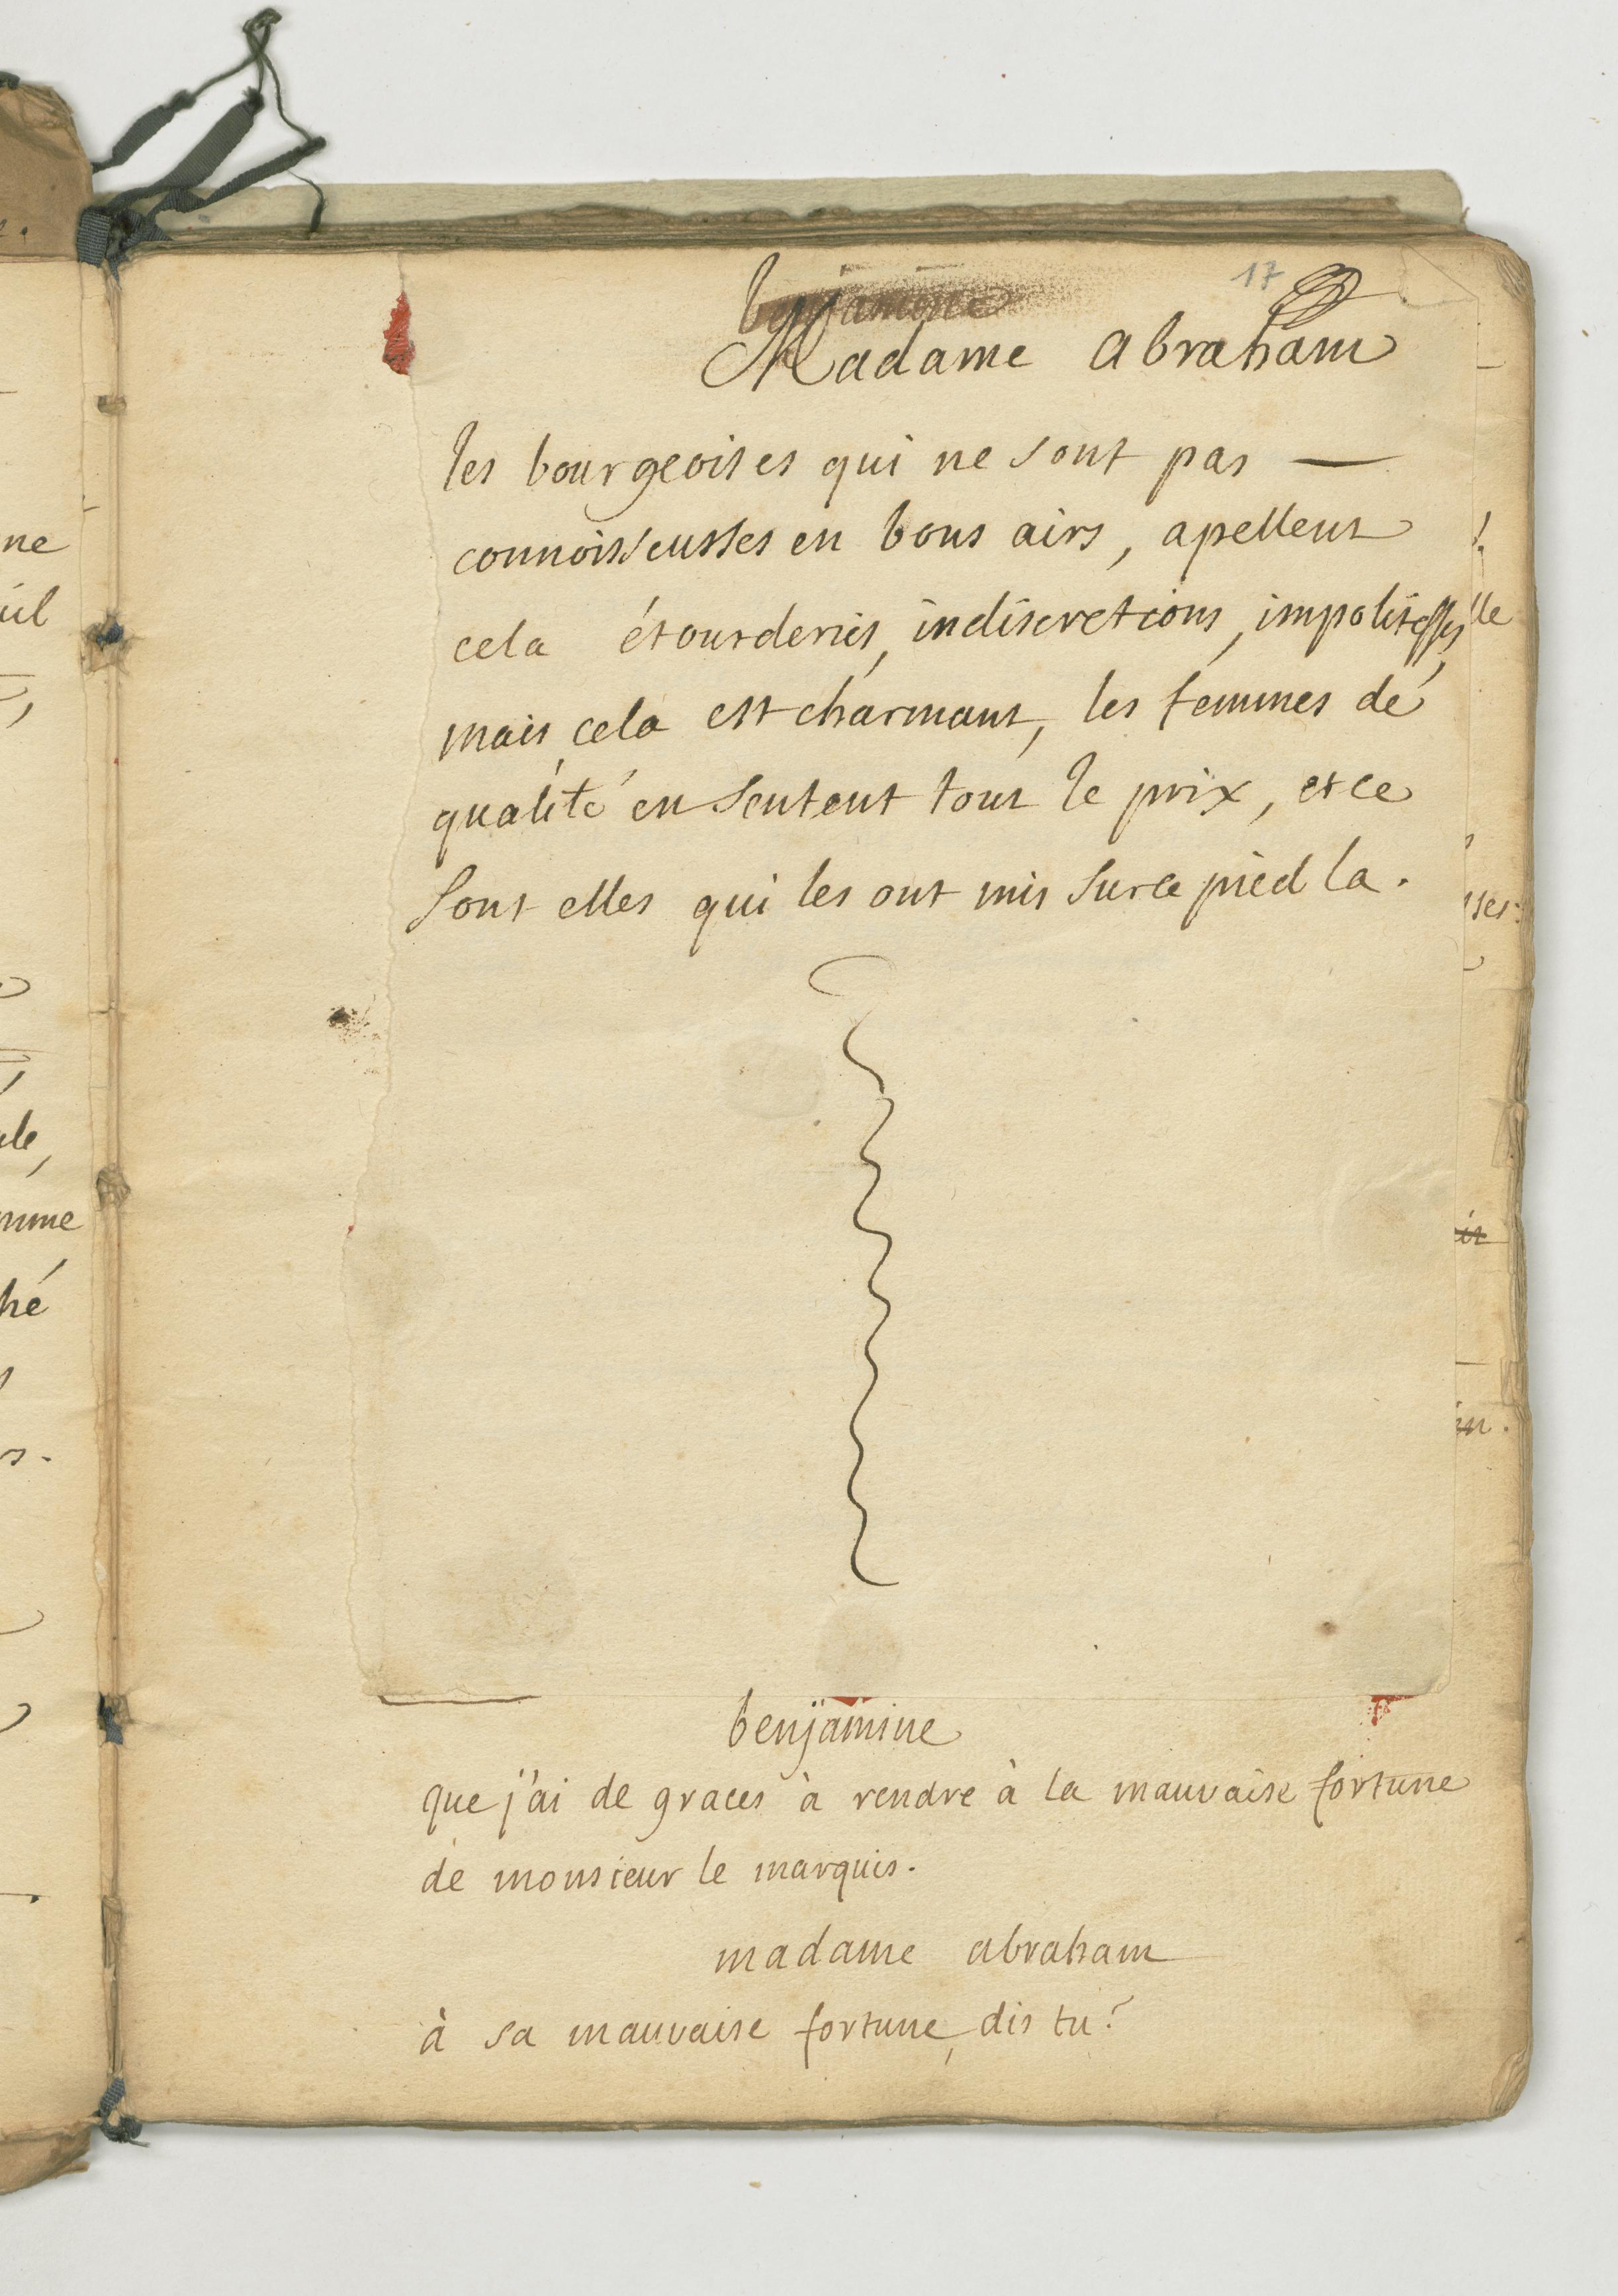 17
benjamine
Madame abraham
les bourgeoises qui ne sont pas —
connoisseusses en bons airs, apellent
cela étourderies, indiscretions, impolitesses,
mais cela est charmant, les femmes de
qualité en sentent tout le prix, et ce
sont elles qui les ont mis sur ce pied la.
benjamine
que j'ai de graces à rendre à la mauvaise fortune
de monsieur le marquis.
madame abraham
à sa mauvaise fortune, dis tu?